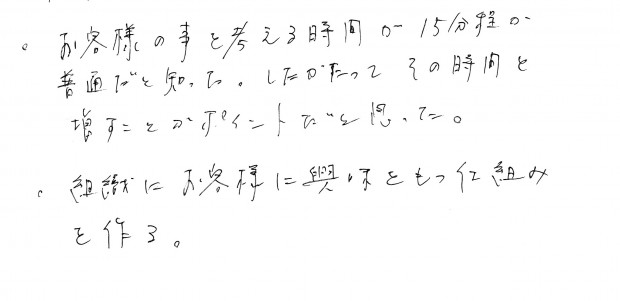 。お客様の事を考える時間が15分程が
普通だと知った。したがって その時間を
増すことがポイントだと思った。
。組織にお客様に興味をもつ仕組み
を作る。